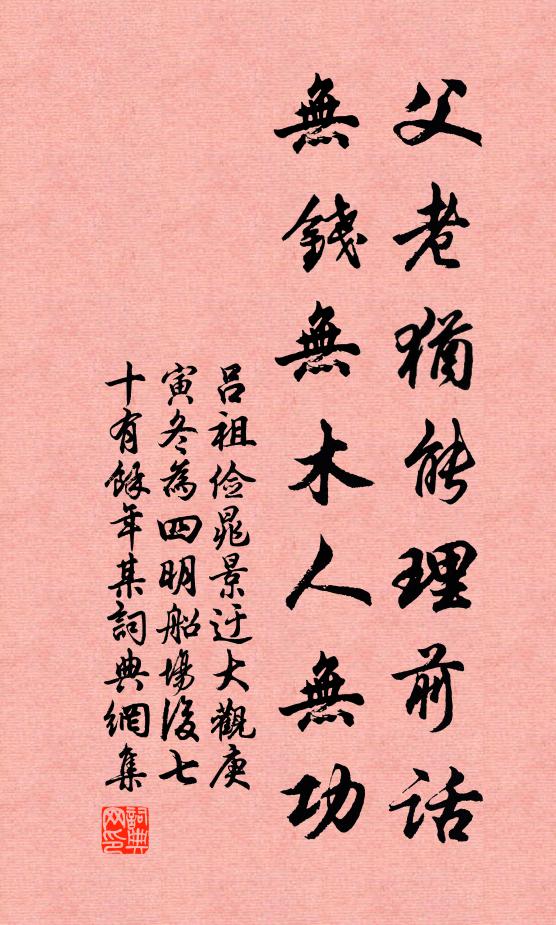 父老猶能理前話
無錢無木人無功
呂祖儉晁景迂大觀庚
寅冬為四明船場後七
十有餘年某詞典網集
詞典
网印